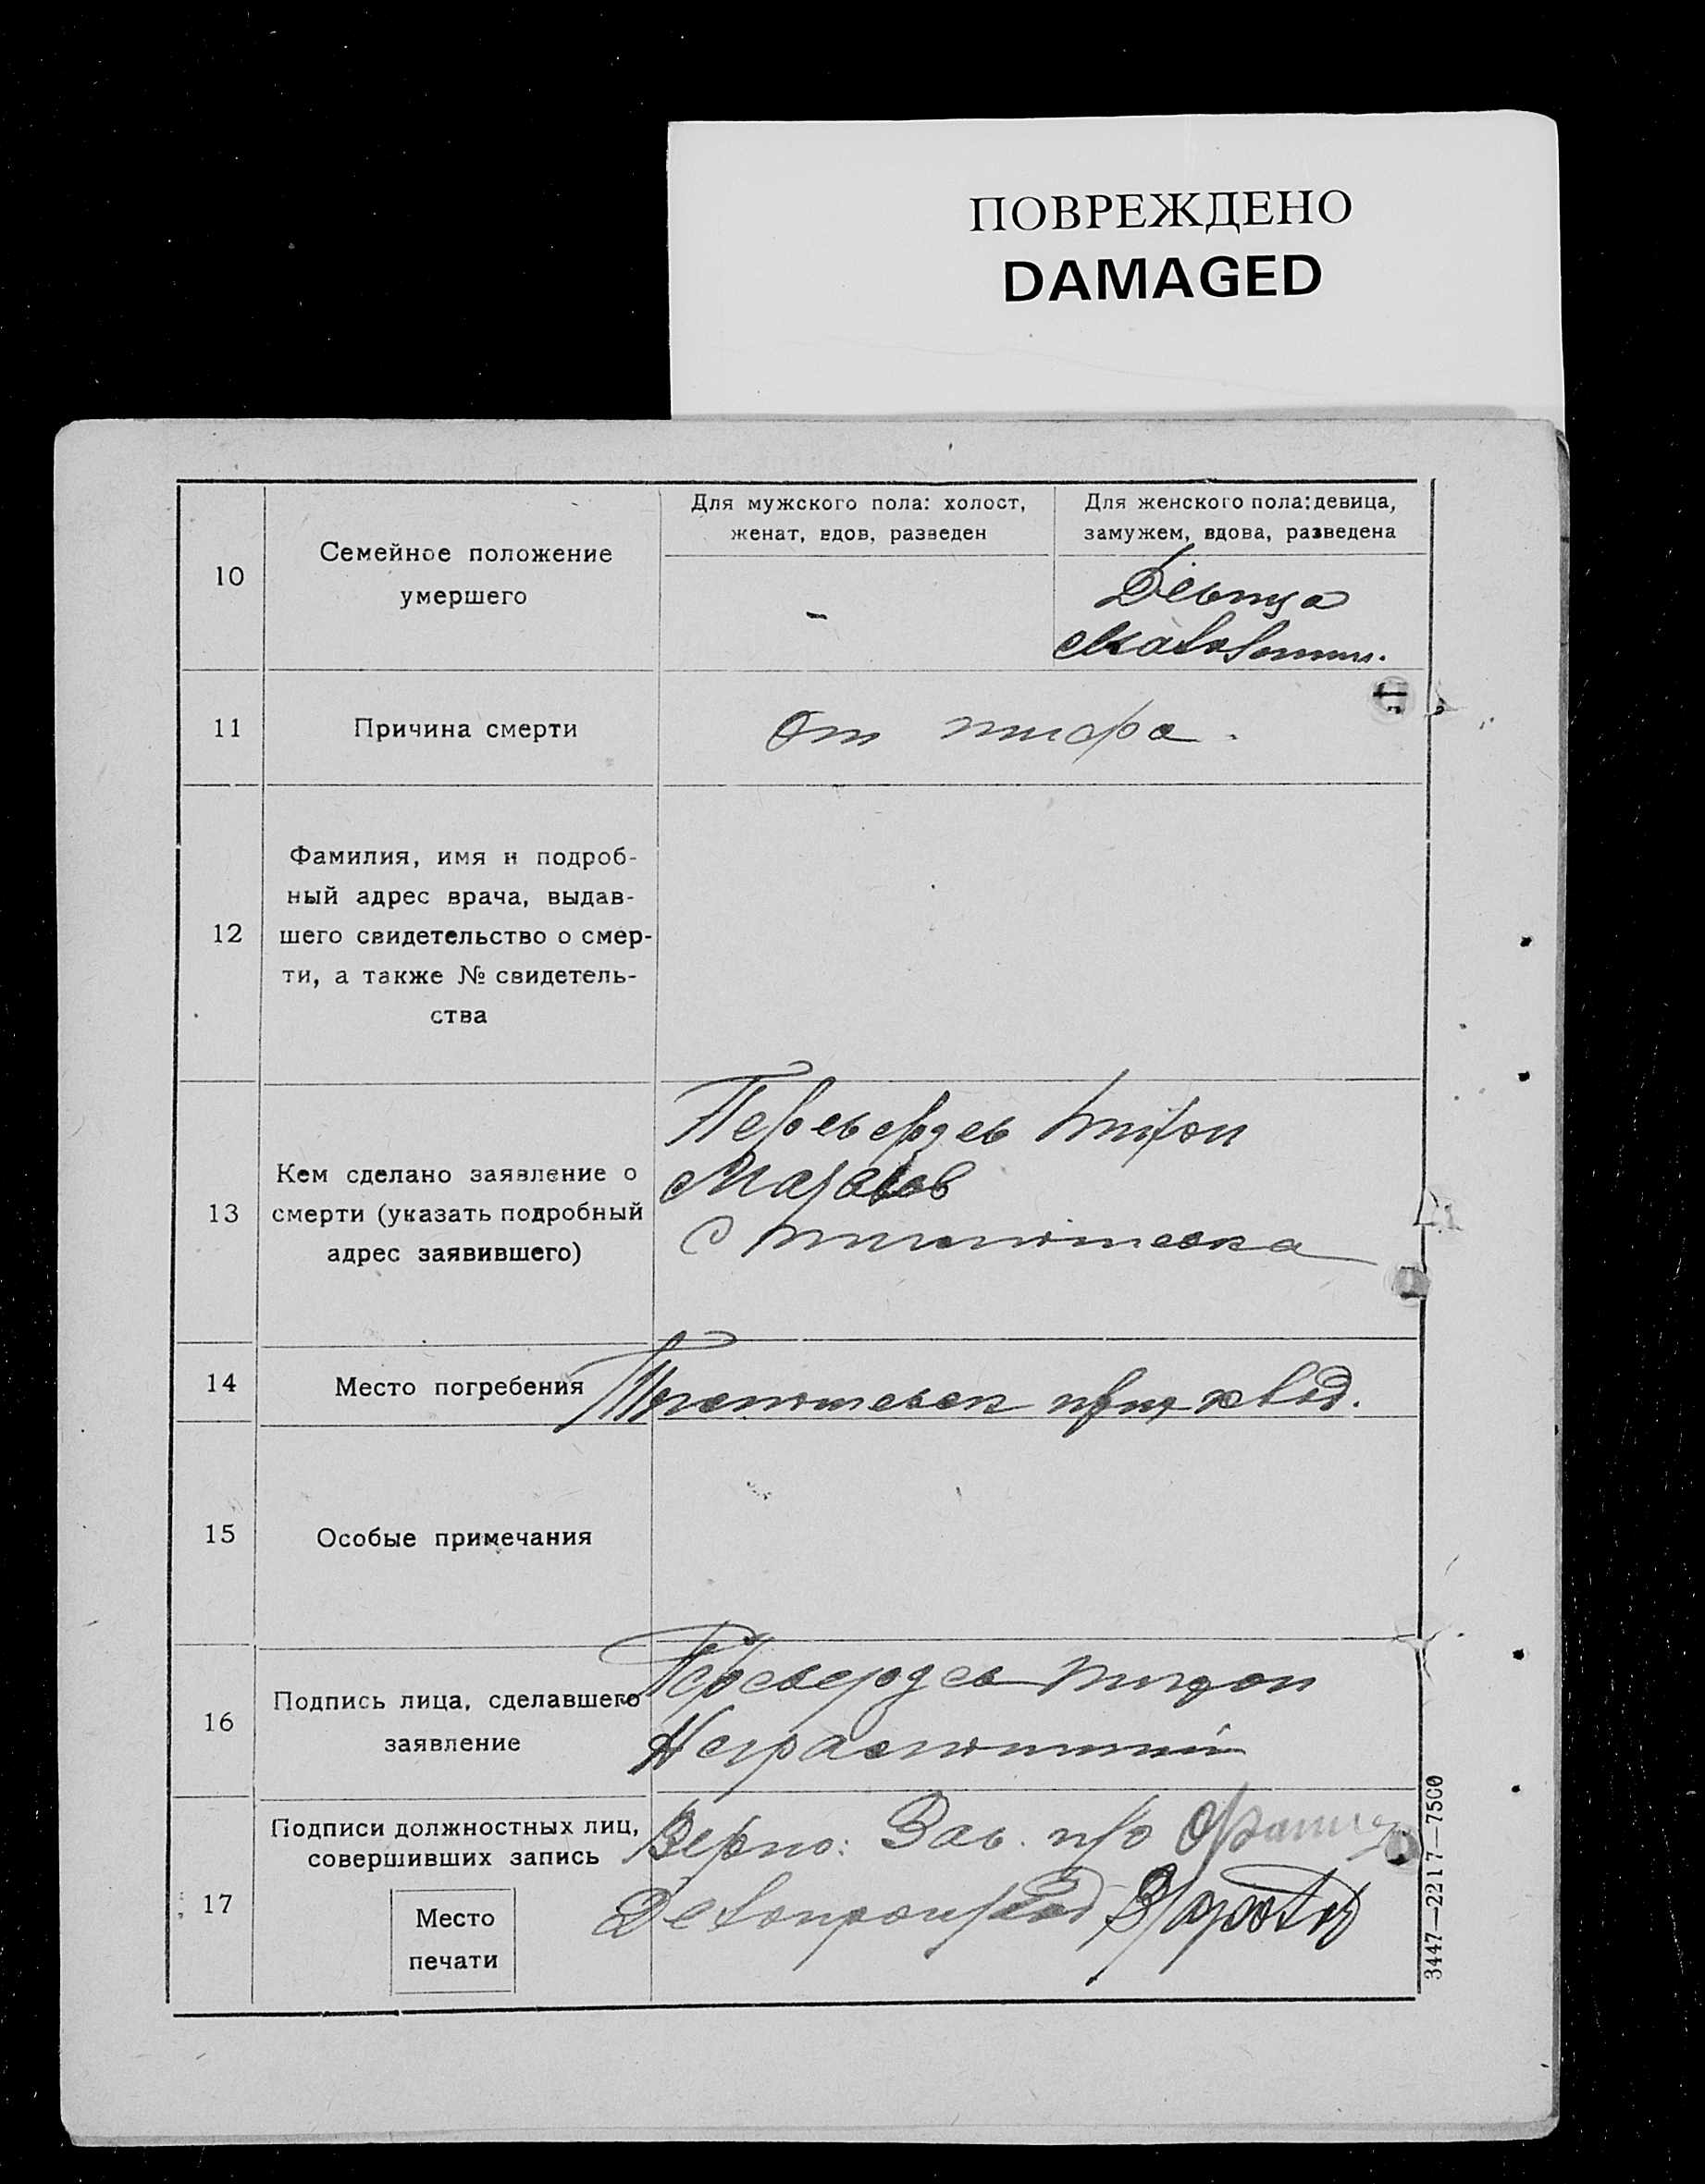 ПОВРЕЖДЕНО
DAMAGED
10
Семейное положение
умершего
Для мужского пола: холост,
женат, вдов, разведен
Для женского пола: девица,
замужем, вдова, разведена
-
Девица
Малолетн.
11
Причина смерти
От тифа.
12
Фамилия, имя и подроб-
ный адрес врача, выдав-
шего свидетельство о смер-
ти, а также № свидетель-
ства
13
Кем сделано заявление о
смерти (указать подробный
адрес заявившего)
Переверзев
14
Место погребения
15
Особые примечания
16
Подпись лица, сделавшего
заявление
Переверзев
17
Подписи должностных лиц,
совершивших запись
Место
печати
Верно: Зав. п/о
Делопроизвод
3447—2217—7500